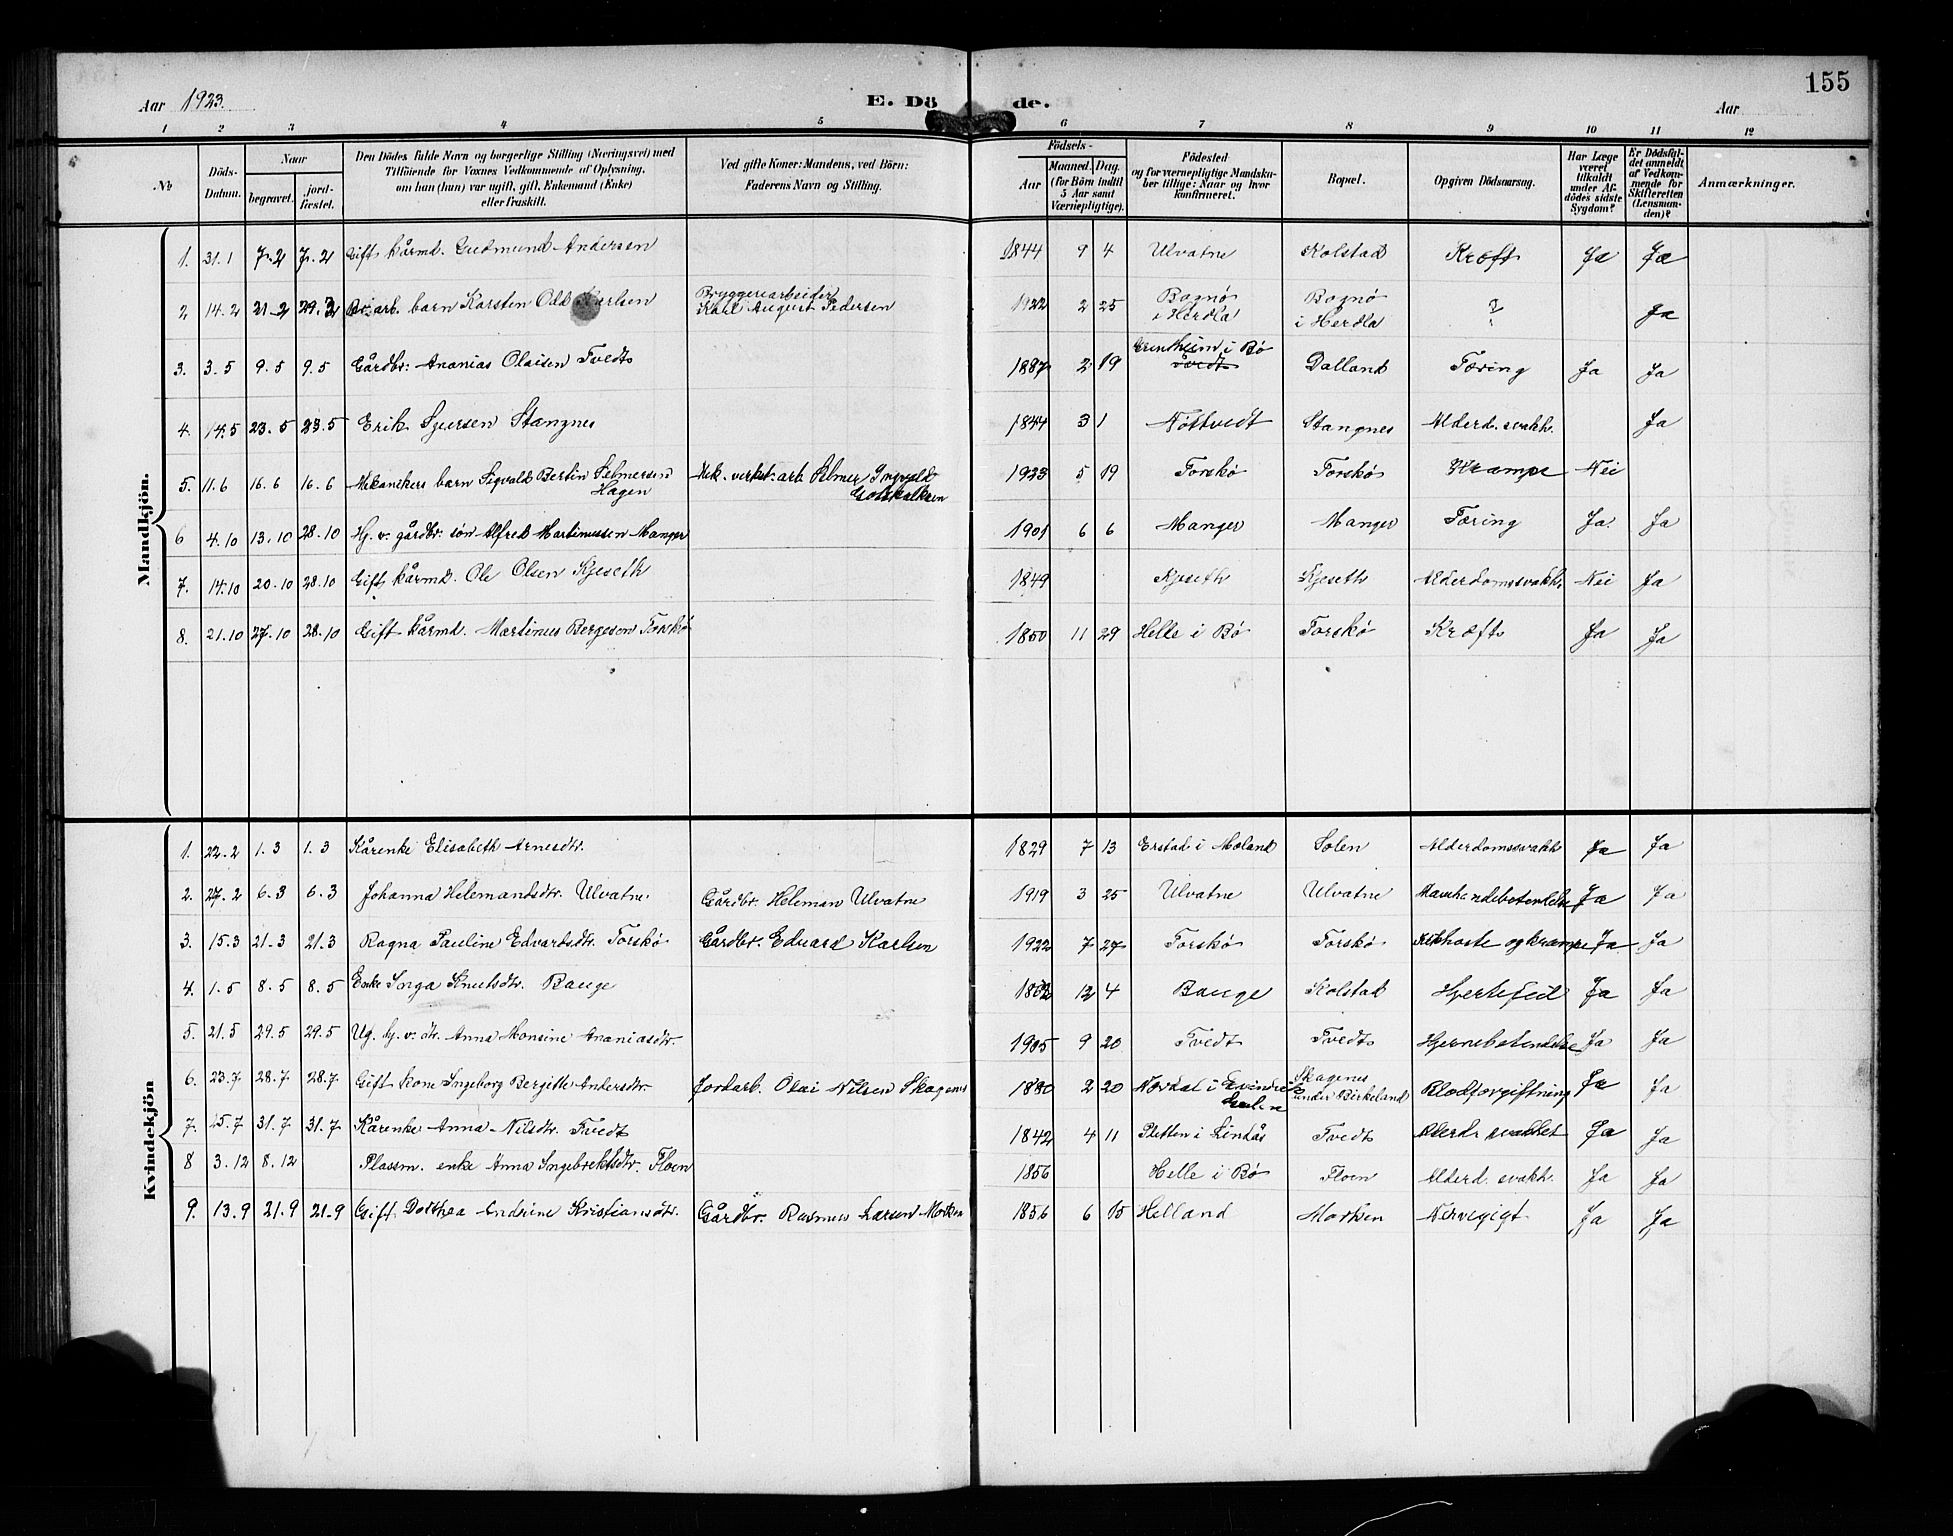 155
Aar 1923. E. Dö de. Aar
1 2 3 4 5 6 7 8 9 10 11 12
No
Döds-Datum.
Naar
begravet.
jord-fæstet.
Den Dödes fulde Navn og borgerlige Stilling (Næringsvei) med
Tilföiende for Voxnes Vedkommende af Oplysning,
om han (hun) var ugift, gift, Enkemand (Enke)
eller fraskilt.
Ved gifte Koner: Mandens, ved Börn:
Faderens Navn og Stilling.
Födsels-
Aar
Maaned. Dag.
(for Börn indtil
5 Aar samt
Værnepligtige).
Födested
og for værnepligtige Mandska-
ber tillige: Naar og hvor
konfirmeret.
Bopæl.
Opgiven Dödsaarsag.
Har Læge
været
tilkaldt
under Af-
dödes sidste
Sygdom?
Er Dödsfal-
det anmeldt
af Vedkom-
mende for
Skifteretten
(Lensman-
den)?
Anmærkninger.
Mandkjön.
1. 31.1 7.2 7.2 Gift kårmd. Gudmund Andersen 1844 9 4 Ulvatne Kolstad Kræft Ja Ja
2 14.2 21.2 29.3 arb. barn Karsten Odd Karlsen Bryggeriarbeider Karl August Pedersen 1922 2 25 Bognø i Herdla Bognø i Herdla ? Ja
3. 3.5 9.5 9.5 Gårdbr: Ananias Olaisen Tvedt 1887 2 19 i Bø Dalland Tæring Ja Ja
4. 14.5 23.5 23.5 Erik Sjursen Stangnes 1844 3 1 Nøttvedt Stangnes Alderd. svakh. Ja
5. 11.6 16.6 16.6 Mekanikers barn Sigvald Bertin Selmersen Hagen Mek. verkst. arb Selmer Ingvald Gotskalksen 1923 5 19 Torskø Torskø Krampe Nei
6 4.10 13.10 28.10 Hj. v. gårdbr. søn Alfred Martinussen Manger 1901 6 6 Manger Manger Tæring Ja Ja
7. 14.10 20.10 28.10 Gift kårmd. Ole Olsen Kjeseth 1849 Kjeseth Kjeseth Alderdomssvakh. Nei Ja
8. 21.10 27.10 28.10 Gift kårmd. Martinus Bergeson Torskø 1850 11 29 Helle i Bø Torskø Kræft Ja Ja
Kvindekjön
1. 22.2 1.3 1.3 Kårenke Elisabeth Arnesdtr. 1829 7 13 Erstad i Moland Solen Alderdomssvakh Ja Ja
2. 27.2 6.3 6.3 Johanna Helemandsdtr. Ulvatne. Gårdbr. Heleman Ulvatne 1919 3 25 Ulvatne Ulvatne Ja Ja
3. 15.3 21.3 21.3 Ragna Pauline Edvardsdtr. Torskø Gårdbr. Edvard Karlsen 1922 7 27 Torskø Torskø Kikhoste og krampe Ja Ja
4. 1.5 8.5 8.5 Enke Inga Knutsdtr. Bauge 12 4 Bauge Kolstad Hjertefeil Ja Ja
5. 21.5 29.5 29.5 Ug. hj. v. dtr. Anna Monsine Ananiasdtr. 1905 9 20 Tvedt Tvedt Hjernebetendelse Ja Ja
6. 23.7 28.7 28.7 Gift kone Ingeborg Bergitte Andersdtr Jordarb. Olai Nilsen Skagenes 1880 2 20 Nordal i Evindvik Skagenes under Birkeland Blodforgiftning Ja Ja
7. 25.7 31.7 31.7 Kårenke Anna Nilsdtr. Tvedt 1842 4 11 Pletten i Lindås Tvedt Alderd. svakhet Ja Ja
8 3.12 8.12 Plassm. enke Anna Ingebrektsdtr. Floen 1856 Helle i Bø Floen Alderd. svakh. Ja Ja
9. 13.9 21.9 21.9 Gift Dorthea Andrine Kristiansdtr. Gårdbr. Rasmus Larsen Morken 1856 6 15 Helland Morken Nervegigt Ja Ja